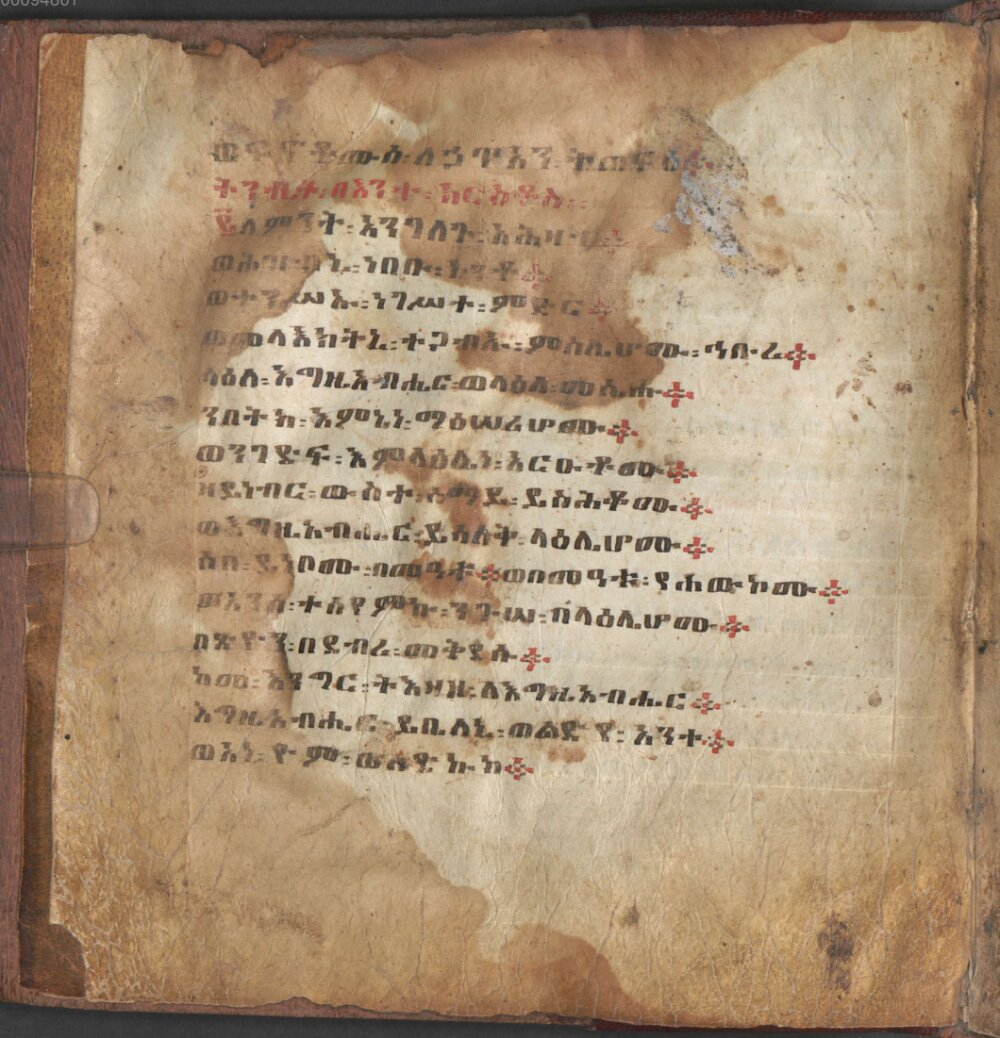 00094801
ወፍኖቶሙሰ፡ለኃጥአን፡ትጠፍዕ፨
ትንቢት፡በእንተ፡
፪ለምንት፡አንገለጉ፡አሕዛብ፨
ወሕዝብኒ፡ነበቡ፡ከንቶ፨
ወተንሥኡ፡ነገሥተ፡ምድር፨
ወመላእክትኒ፡ተጋብኡ፡ምስሌሆሙ፡ኅቡረ፨
ላዕለ፡እግዚአብሔር፡ወላዕለ፡መሲሑ፨
ንበትክ፡እምኔነ፡ማዕሠሪሆሙ፨
ወንገድፍ፡እምላዕሌነ፡አርዑቶሙ፨
ዘይነብር፡ውስተ፡ሰማይ፡ይስሕቆሙ፨
ወእግዚአብሔር፡ይሳለት፡ላዕሌሆሙ፨
ሶበ፡ይነቦሙ፡በመዓቱ፨ወበመዓቱ፡የሐውኮሙ፨
ወአንሰ፡ተሰየምኩ፡ንጉሠ፡በላዕሌሆሙ፨
በጽዮን፡በደብረ፡መቅደሱ፨
ከመ፡እንግር፡ትእዛዙ፡ለእግዚአብሔር፨
እግዚአብሔር፡ይቤለኒ፡ወልድየ፡አንተ፨
ወአነ፡ዮም፡ወለድኩከ፨